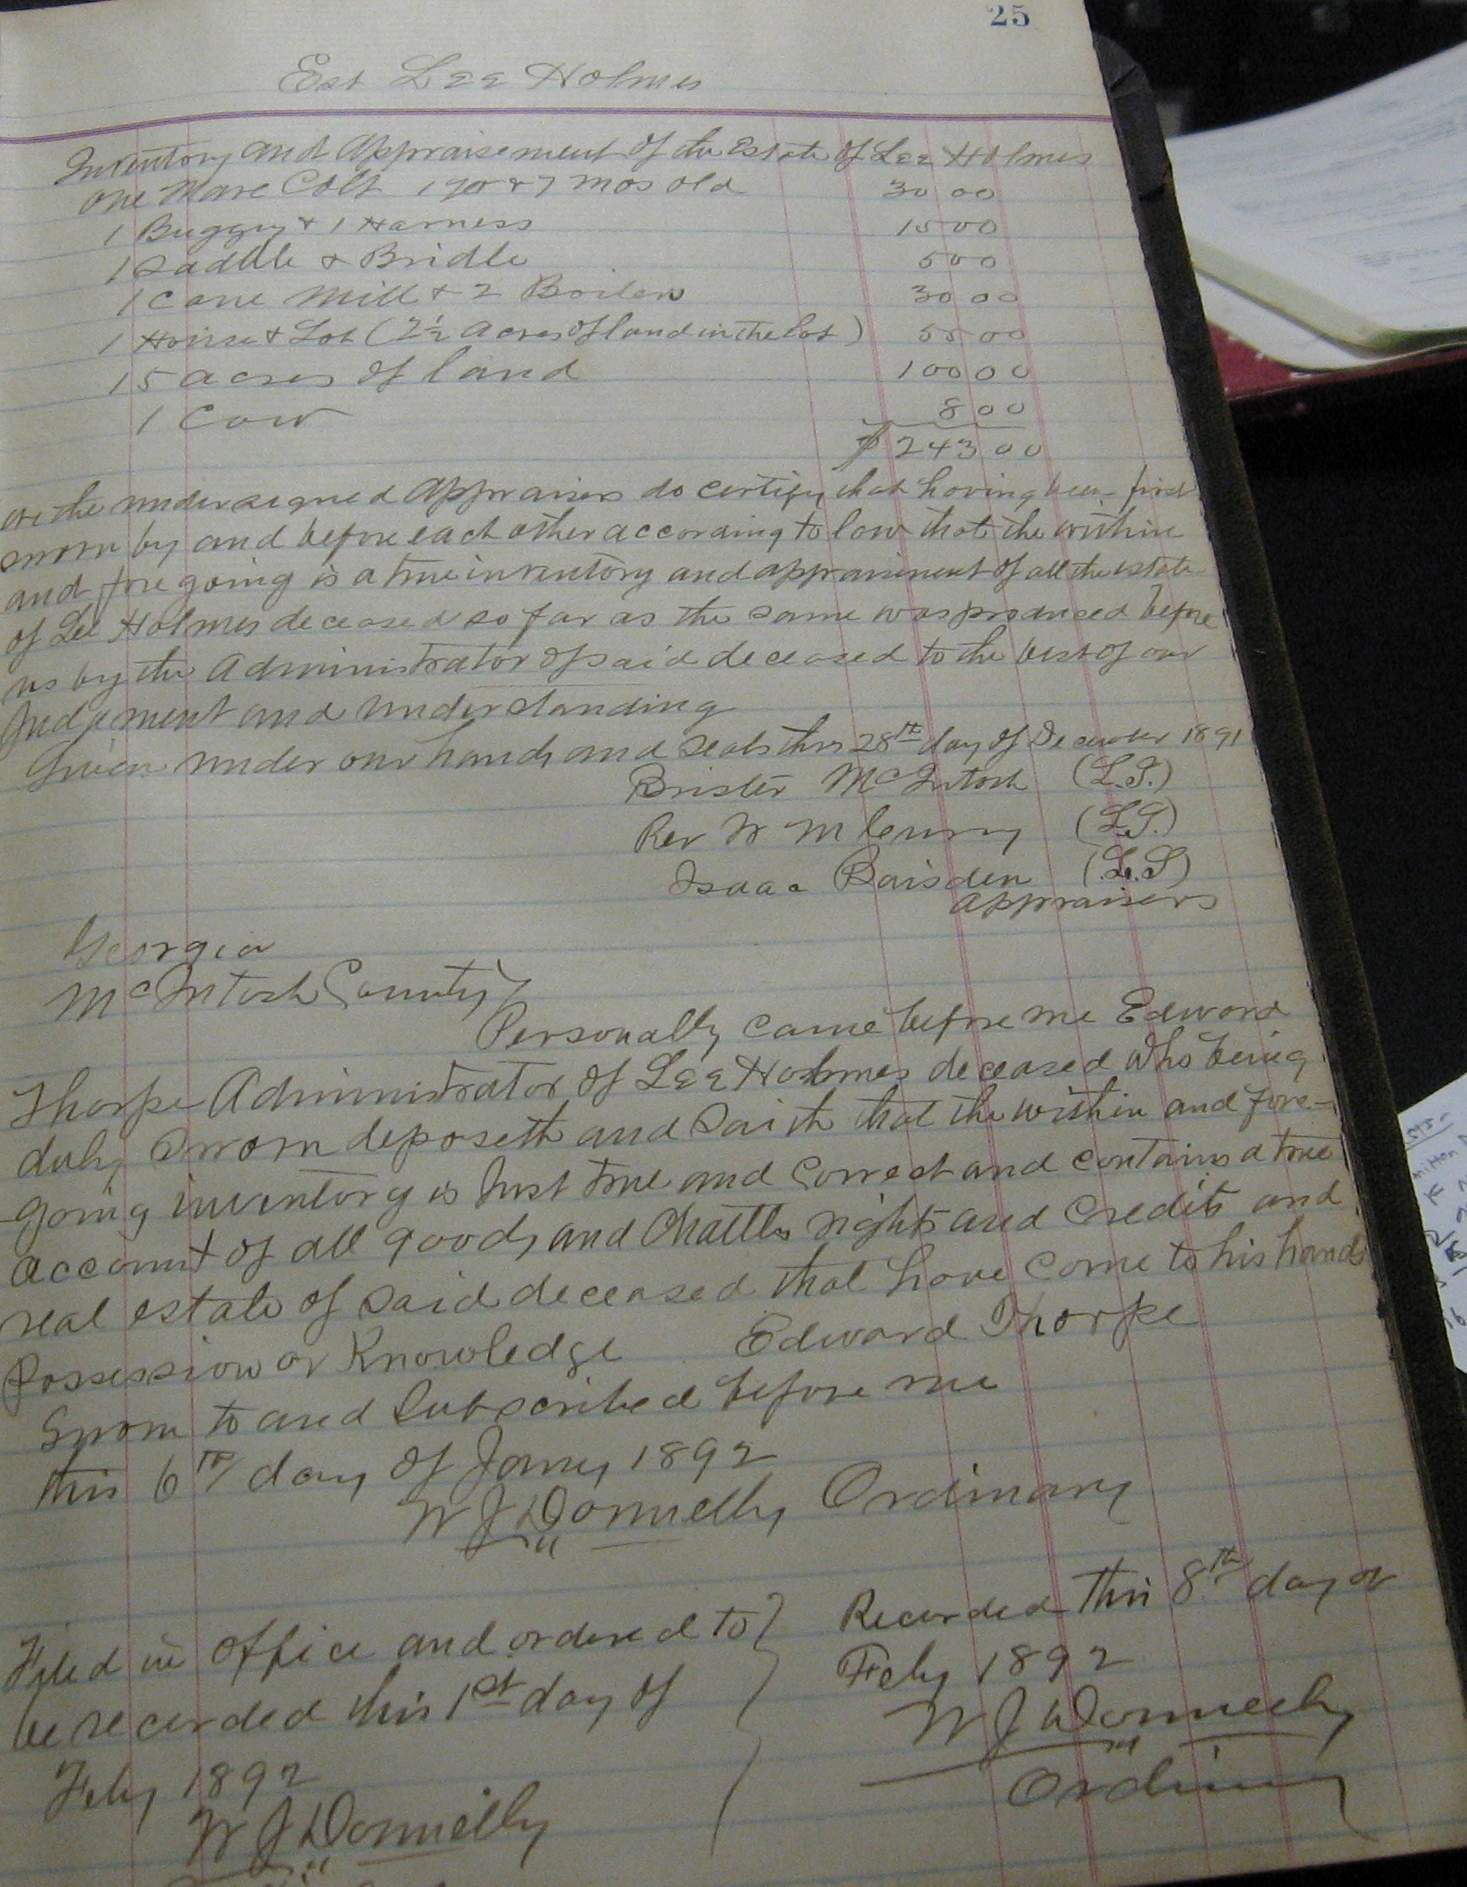 25
Est Lee Holmes
Inventory and Appraisement of the Estate of Lee Holmes
One Mare Colt 1 yr & 7 mos old 30 00
1 Buggy & 1 Harness 15 00
1 Saddle & Bridle 5 00
1 Cane Mill & 2 Boilers 30 00
1 House & Lot (2½ acres of land in the lot) 55 00
15 acres of land 100 00
1 Cow 8 00
$243 00
We the undersigned appraisers do certify that having been first
sworn by and before each other according to law that the within
and fore going is a true inventory and appraisment of all the estate
of Lee Holmes deceased so far as the same was produced before
us by the Administrator of said deceased to the best of our
Judgement and understanding
Given under our hands and seals this 28th day of December 1891
Brister McIntosh (L.S.)
Rev W M (L.S.)
Isaac Baisden (L.S)
appraisers
Georgia
McIntosh County }
Personally came before me Edward
Thorpe Administrator of Lee Holmes deceased who being
duly sworn deposeth and saith that the within and fore-
going inventory is Just true and Correct and contains a true
account of all goods and Chattles rights and Credits and
real estate of said deceased that have come to his hands
Possession or Knowledge Edward Thorpe
Sworn to and Subscribed before me
this 6th day of Jany 1892
W J Donnelly Ordinary
Filed in office and ordered to }
be recorded this 1st day of
Feby 1892
W J Donnelly
Recorded this 8th day of
Feby 1892
W J Donnelly
Ordinary